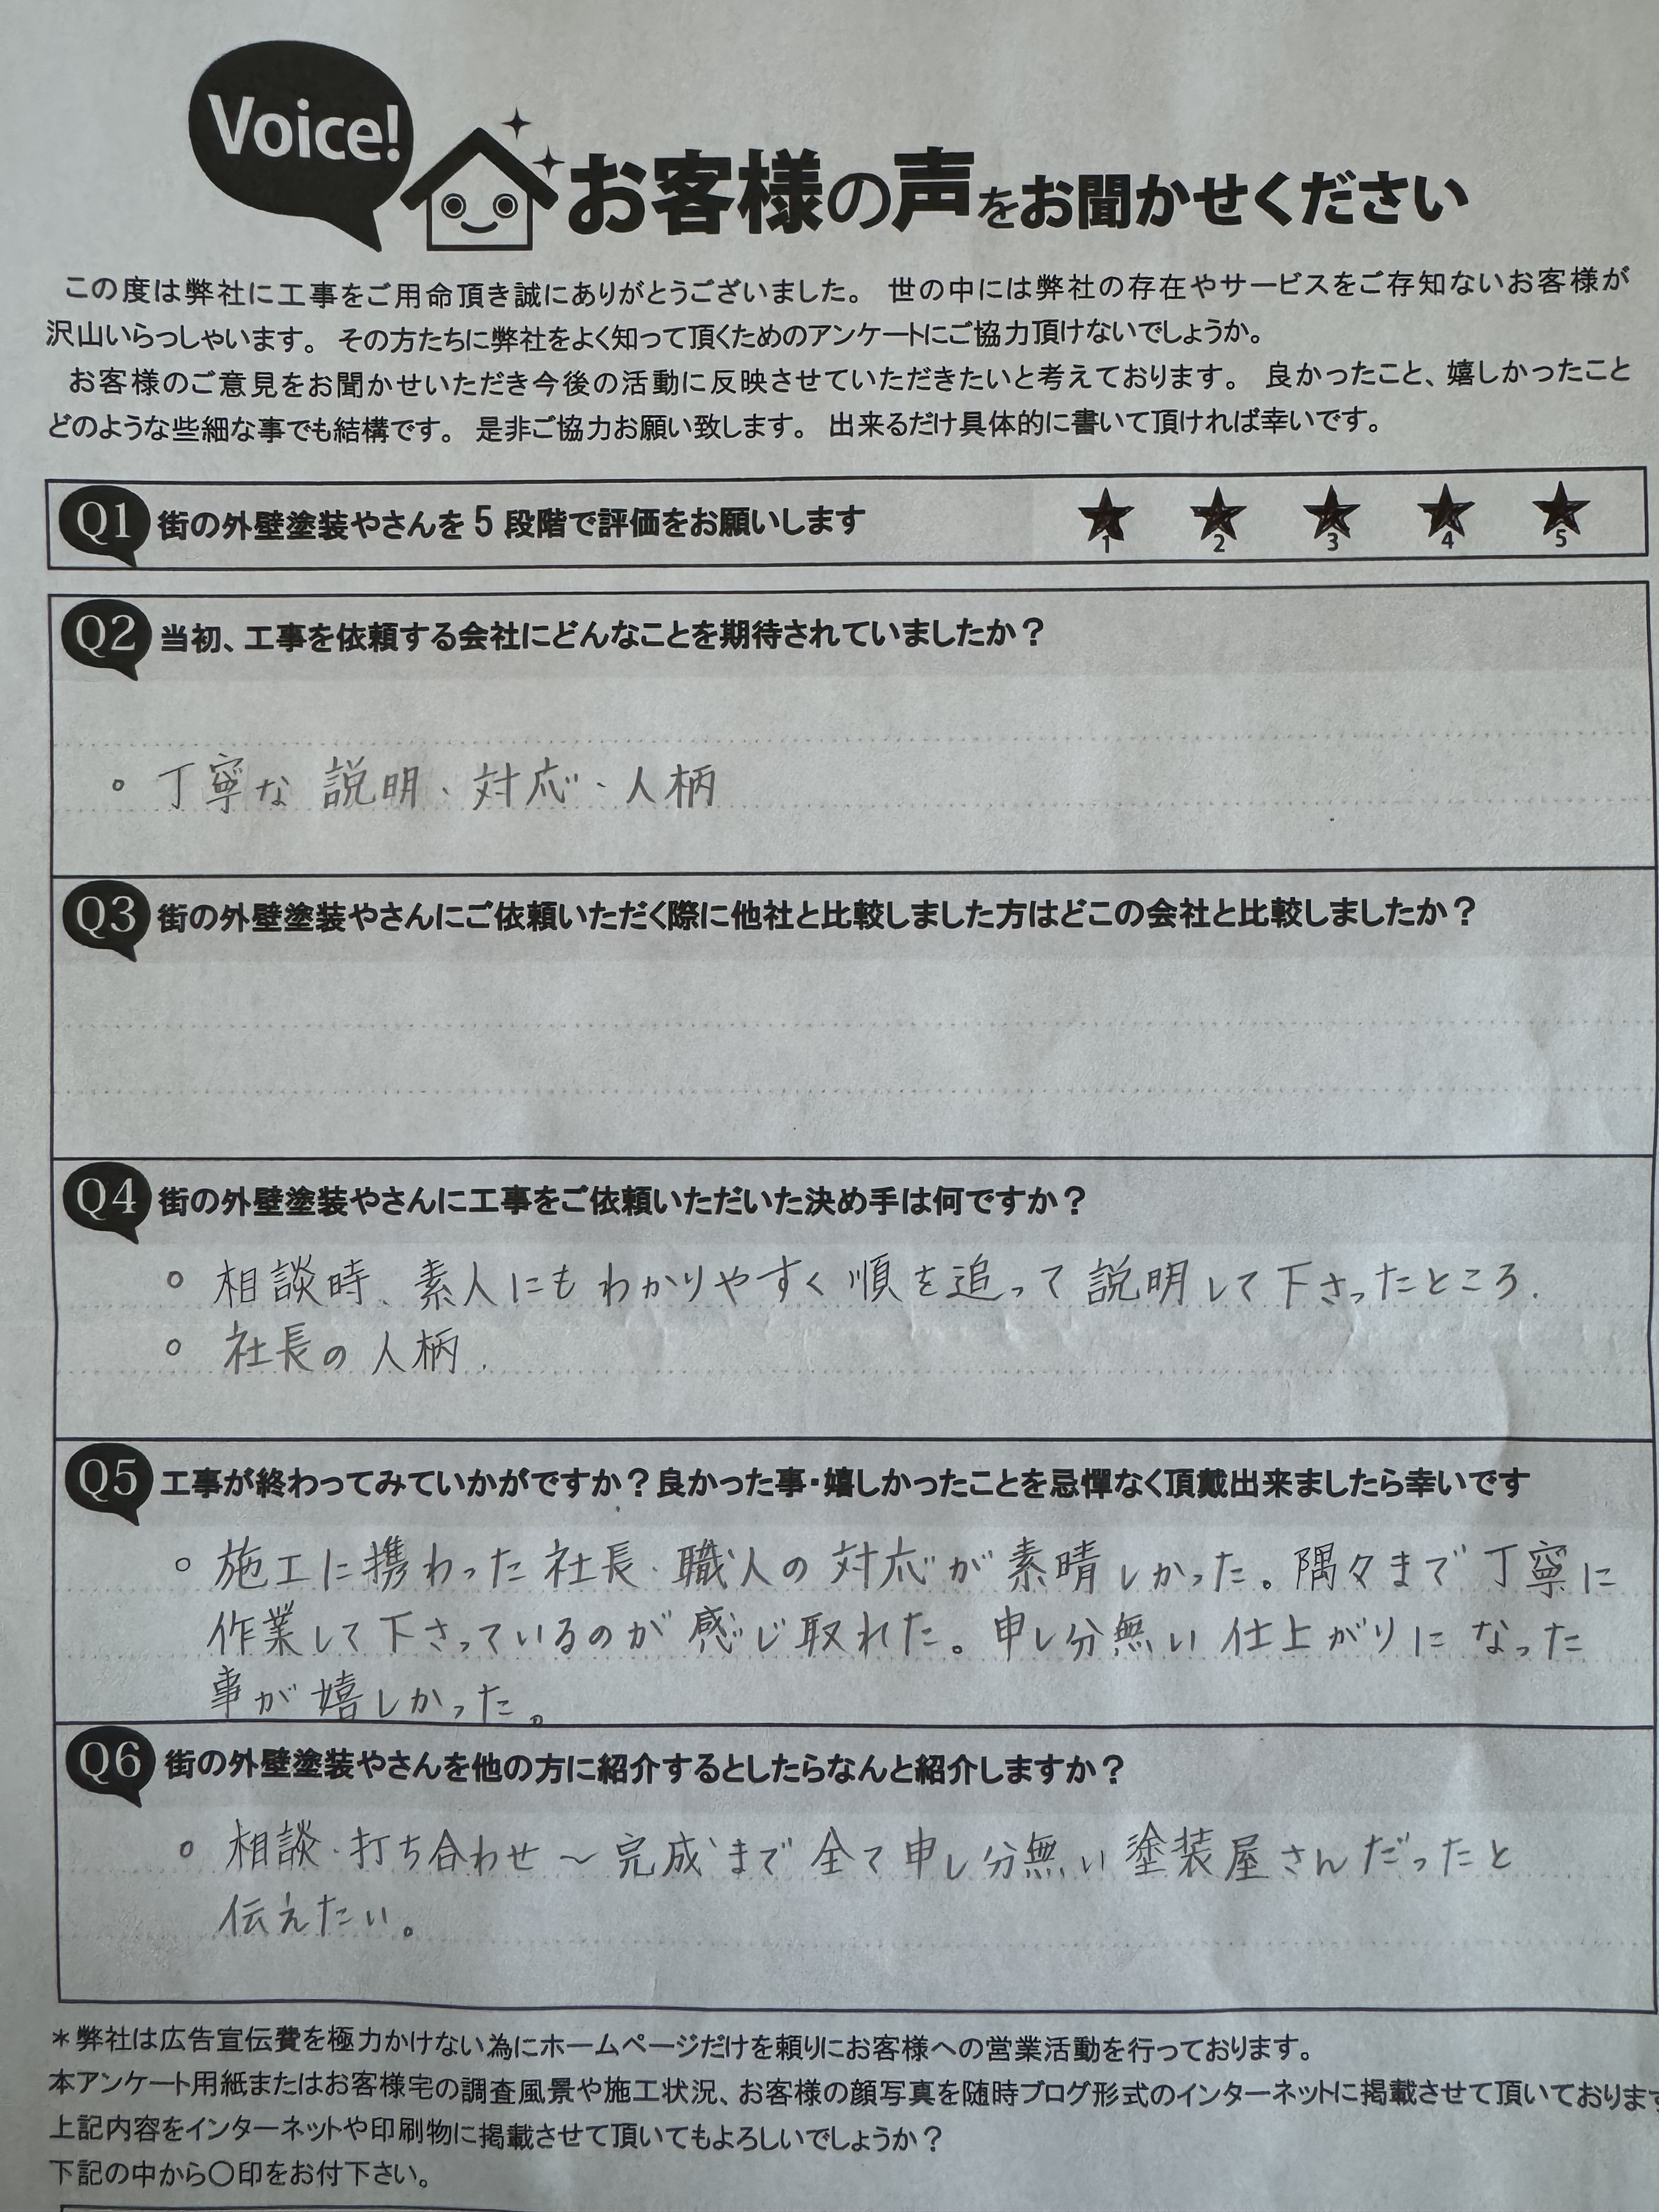 Voice!
お客様の声をお聞かせください
この度は弊社に工事をご用命頂き誠にありがとうございました。 世の中には弊社の存在やサービスをご存知ないお客様が
沢山いらっしゃいます。 その方たちに弊社をよく知って頂くためのアンケートにご協力頂けないでしょうか。
お客様のご意見をお聞かせいただき今後の活動に反映させていただきたいと考えております。 良かったこと、嬉しかったこと
どのような些細な事でも結構です。 是非ご協力お願い致します。 出来るだけ具体的に書いて頂ければ幸いです。
Q1 街の外壁塗装やさんを5段階で評価をお願いします ★1 ★2 ★3 ★4 ★5
Q2 当初、工事を依頼する会社にどんなことを期待されていましたか？
。丁寧な説明、対応、人柄
Q3 街の外壁塗装やさんにご依頼いただく際に他社と比較しました方はどこの会社と比較しましたか？
Q4 街の外壁塗装やさんに工事をご依頼いただいた決め手は何ですか？
。相談時、素人にもわかりやすく順を追って説明して下さったところ.
。社長の人柄.
Q5 工事が終わってみていかがですか？良かった事・嬉しかったことを忌憚なく頂戴出来ましたら幸いです
。施工に携わった社長・職人の対応が素晴しかった。隅々まで丁寧に
作業して下さっているのが感じ取れた。申し分無い仕上がりになった
事が嬉しかった。
Q6 街の外壁塗装やさんを他の方に紹介するとしたらなんと紹介しますか？
。相談・打ち合わせ～完成まで全て申し分無い塗装屋さんだったと
伝えたい。
＊弊社は広告宣伝費を極力かけない為にホームページだけを頼りにお客様への営業活動を行っております。
本アンケート用紙またはお客様宅の調査風景や施工状況、お客様の顔写真を随時ブログ形式のインターネットに掲載させて頂いております
上記内容をインターネットや印刷物に掲載させて頂いてもよろしいでしょうか？
下記の中から〇印をお付下さい。